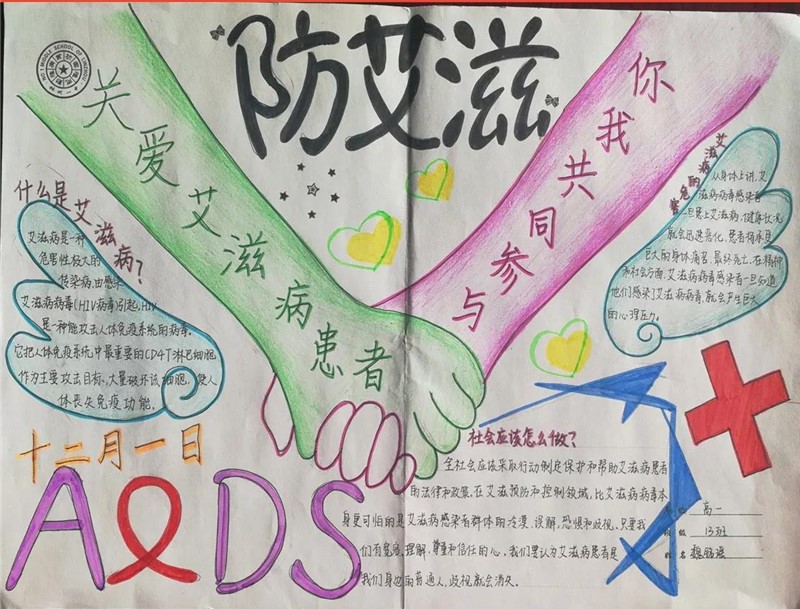 防艾滋
关爱艾滋病患者
你我共同参与
什么是艾滋病?
艾滋病是一种
危害性极大的
传染病,由感染
艾滋病病毒(HIV病毒)引起,HIV
是一种能攻击人体免疫系统的病毒.
它把人体免疫系统中最重要的CD4T淋巴细胞
作为主要攻击目标,大量破坏该细胞,使人
体丧失免疫功能.
艾滋病的危害
从身体上讲,艾
滋病病毒感染者
一旦患上艾滋病,健康状况
就会迅速恶化,患者将承受
巨大的身体痛苦,最终死亡.在精神
和社会方面,艾滋病病毒感染者一旦知道
他们感染了艾滋病病毒,就会产生巨大
的心理压力.
十二月一日
AIDS
社会应该怎么做?
全社会应该采取行动制定保护和帮助艾滋病患者
的法律和政策.在艾滋预防和控制领域,比艾滋病病毒本
身更可怕的是艾滋病感染者群体的冷漠、误解、恐惧和歧视,只要我
们有宽容、理解、尊重和信任的心,我们要认为艾滋病患者是
我们身边的普通人,歧视就会消失.
高一
班级
13班
姓名